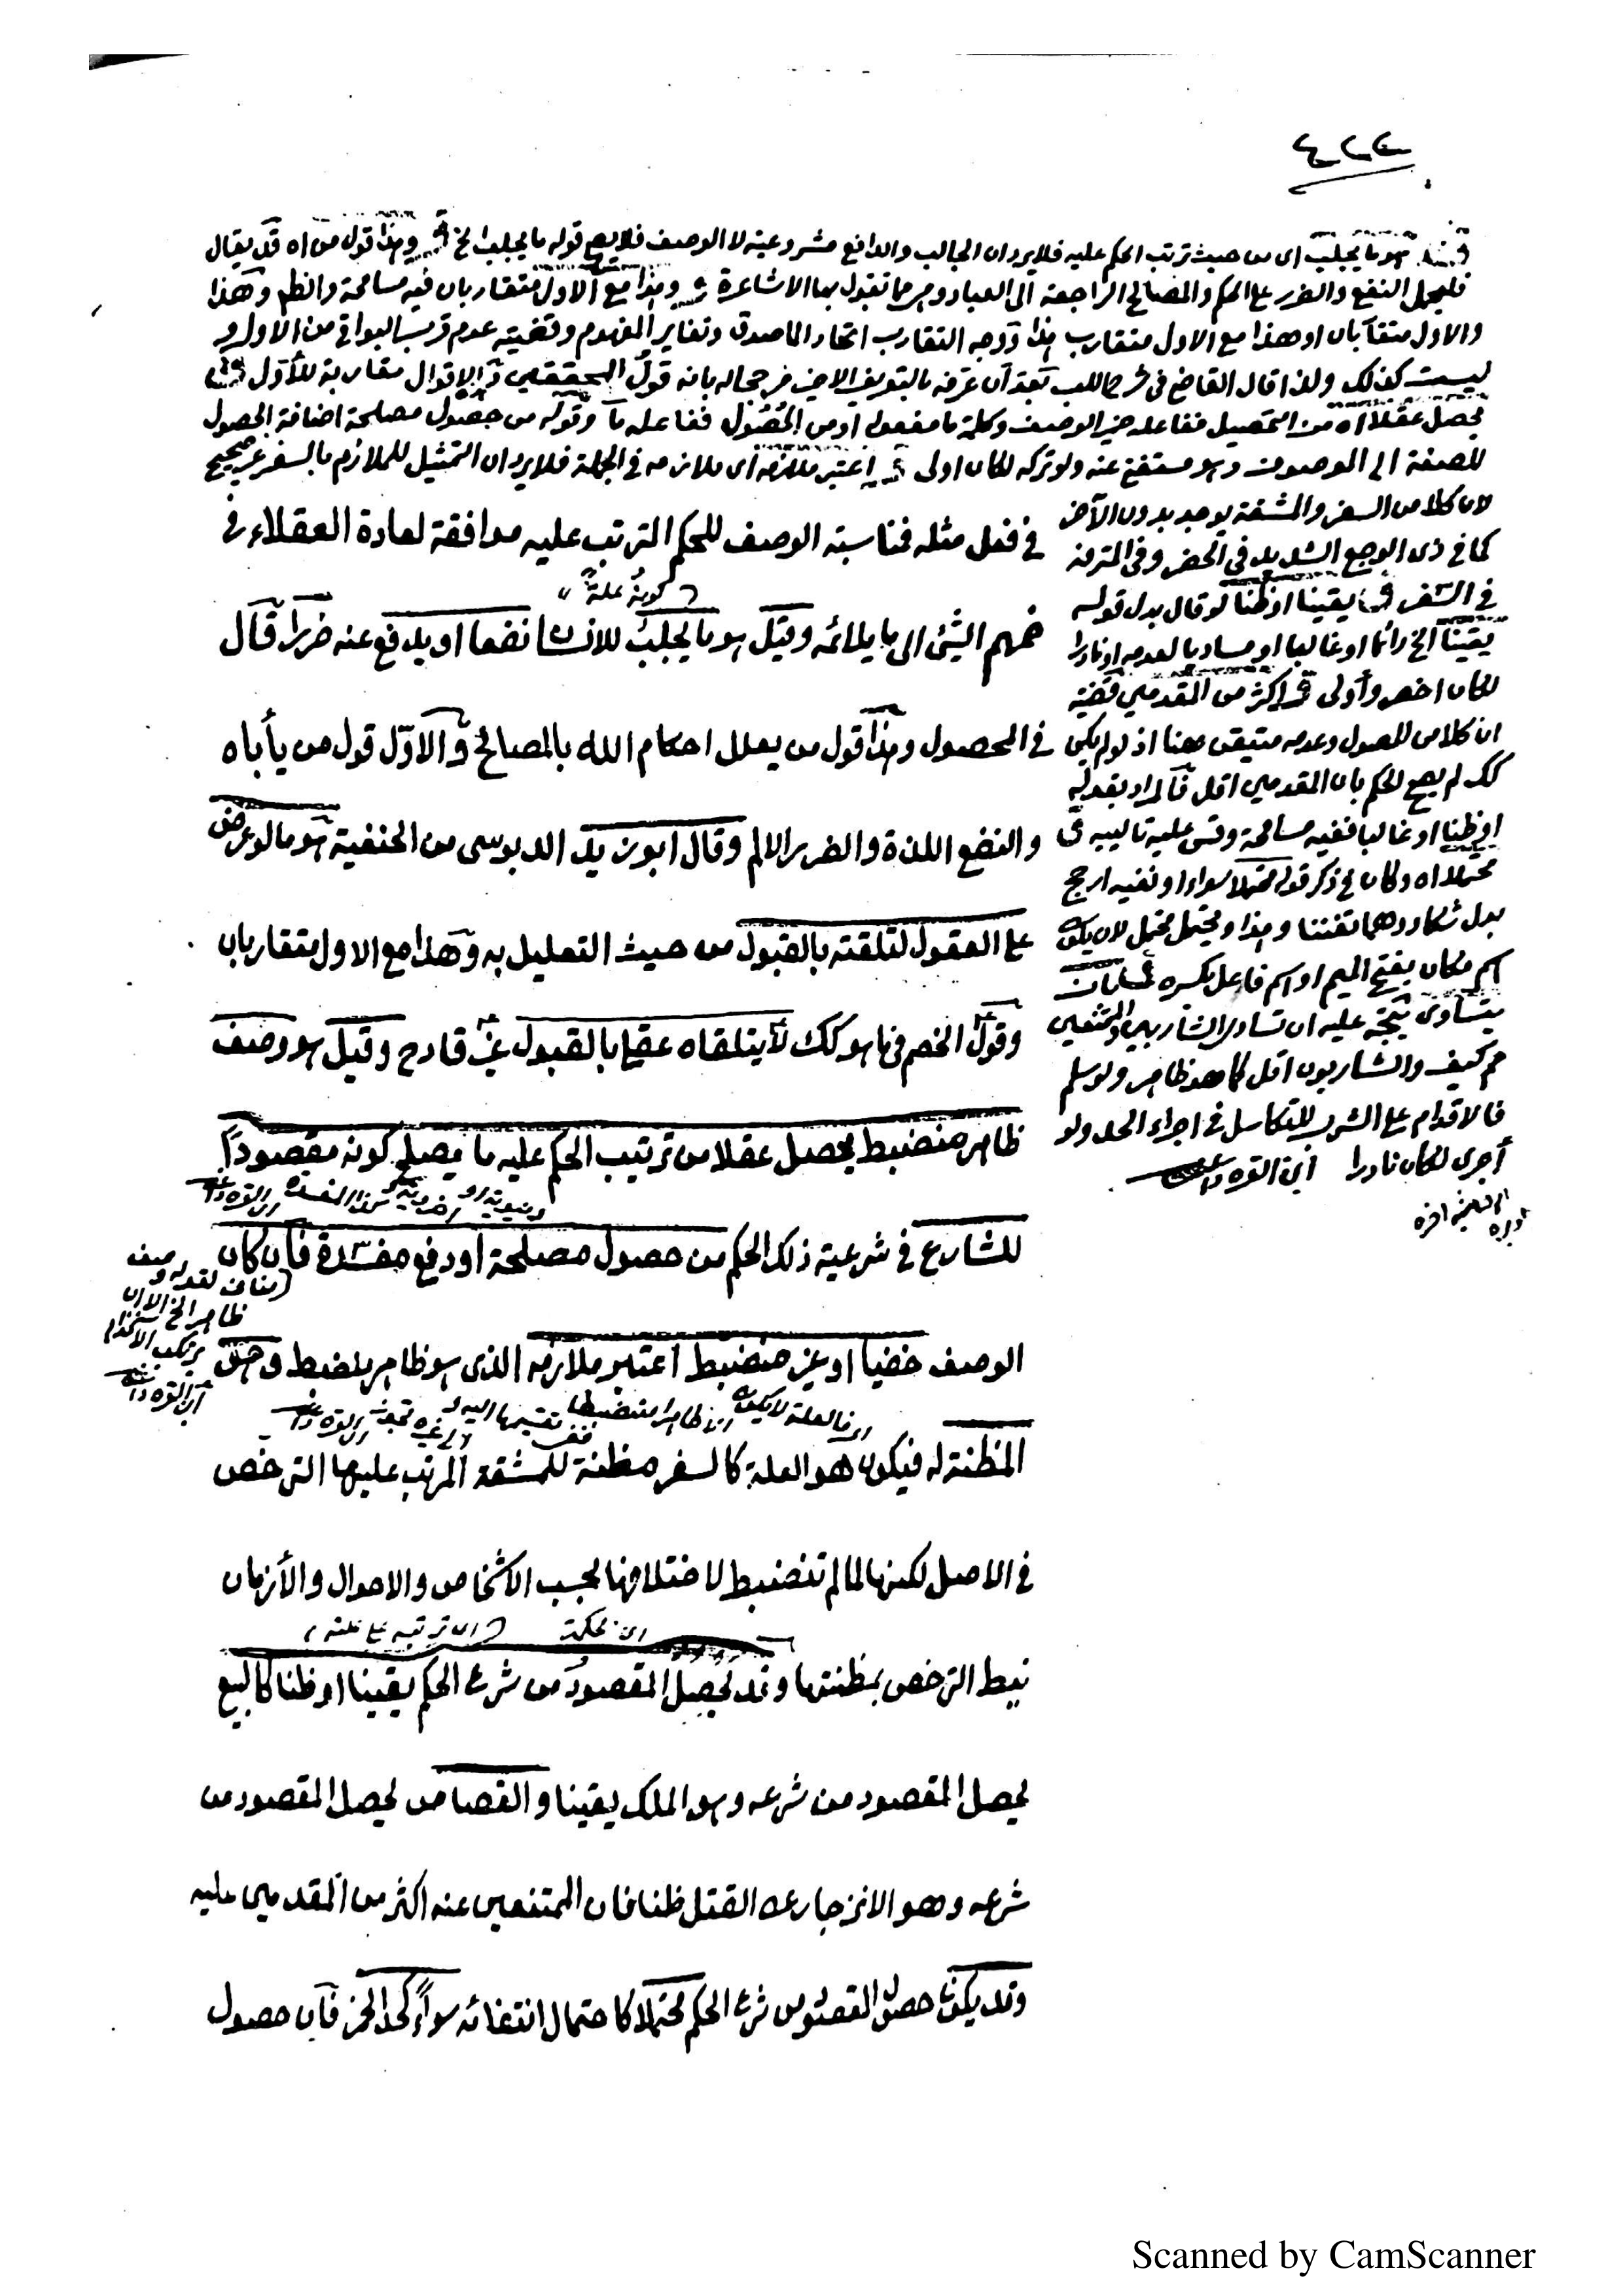 ٤٢٢
هو ما يجلب اى من حيث ترتب الحكم عليه فلا يرد ان الجالب والدافع مشروعيته لا الوصف فلا يصح قوله ما يجلب الخ وهذا قول من اه قد يقال
فليحمل النفع والضرر على الحكم والمصالح الراجعة الى العباد وهو مما تقول بها الاشاعرة وهذا مع الاول متقاربان فيه مسامحة والظم وهذا
والاول متقاربان او هذا مع الاول متقارب هذا ووجه التقارب اتحاد الماصدق وتغاير المفهوم وقضيته عدم قرب البواقى من الاول و
ليست كذلك ولذا قال القاضى فى شرح اللب بعد ان عرفه بالتعريف الاخير بانه قول المحققين والاقوال مقاربة للأول
يحصل عقلا اه من التحصيل ففاعله ضمير الوصف وكلمة ما مفعوله او من الحُصُول ففاعله ما وقوله من حصول مصلحة اضافة الحصول
للصفة الى الموصوف وهو مستغنى عنه ولو تركه لكان اولى اعتبر ملازمه اى ملازمه فى الجملة فلا يرد ان التمثيل للملازم بالسفر غير صحيح
لان كلا من السفر والمشقة يوجد بدون الآخر
كما فى ذى الوجع الشديد فى الحضر وفى المترفه
فى السفر يقينا او ظنا لو قال بدل قوله
يقينا الخ دائما او غالبا او مساويا لعدمه او نادرا
لكان اخصر وأولى اكثر من المقدمين قضيته
ان كلا من الحصول وعدمه متيقن هنا اذ لو لم يكن
كك لم يصح الحكم بان المقدمين اقل فالمراد بقوله
او ظنا او غالبا ففيه مسامحة وقس عليه تالييه
محتملا اه وكان فى ذكر قوله محتملا سواء او نفيه ارجح
بدل شكا ووهما تفننا وهذا ويحتمل محتمل لان يكون
اسم مكان بفتح الميم او اسم فاعل بكسره
بتساوى يتجه عليه ان تساوى الشاربين والممتنعين
مم كيف والشاربون اقل كما هو ظاهر ولو سلم
فالاقدام على الشرب للتكاسل فى اجراء الحد ولو
أجرى لكان نادرا ابن القره داغى
فى فعل مثله فمناسبة الوصف للحكم المترتب عليه موافقة لعادة العقلاء فى
كونه علة
ضمهم الشئ الى ما يلائمه وقيل هو ما يجلب للانسان نفعا او يدفع عنه ضررا قال
فى المحصول وهذا قول من يعلل احكام الله بالمصالح والاوّل قول من يأباه
والنفع اللذة والضرر الالم وقال ابوزيد الدبوسى من الحنفية هو ما لو عرض
على العقول لتلقته بالقبول من حيث التعليل به وهذا مع الاول متقاربان
وقول الخصم فيما هو كك لا يتلقاه عقلى بالقبول غير قادح وقيل هو وصف
ظاهر منضبط يحصل عقلا من ترتيب الحكم عليه ما يصلح كونه مقصوداً
للشارع فى شرعية ذلك الحكم من حصول مصلحة او دفع مفسدة فان كان
مناف لقوله وصف
ظاهر الخ الا ان
يرتكب الاستخدام
ابن القره داغى
الوصف خفيا او غير منضبط اعتبر ملازمه الذى هو ظاهر منضبط وهو
المظنة له فيكون هو العلة كالسفر مظنة للمشقة المرتب عليها الترخص
فى الاصل لكنها لما لم تنضبط لاختلافها بحسب الاشخاص والاحوال والأزمان
اى الحكمة
نيط الترخص بمظنتها وقد يحصل المقصود من شرع الحكم يقينا او ظنا كالبيع
يحصل المقصود من شرعه وهو الملك يقينا والقصاص يحصل المقصود من
شرعه وهو الانزجار عن القتل ظنا فان الممتنعين عنه اكثر من المقدمين عليه
وقد يكون حصول المقصود من شرع الحكم محتملا كاحتمال انتفائه سواءً كحد الخمر فان حصول
Scanned by CamScanner